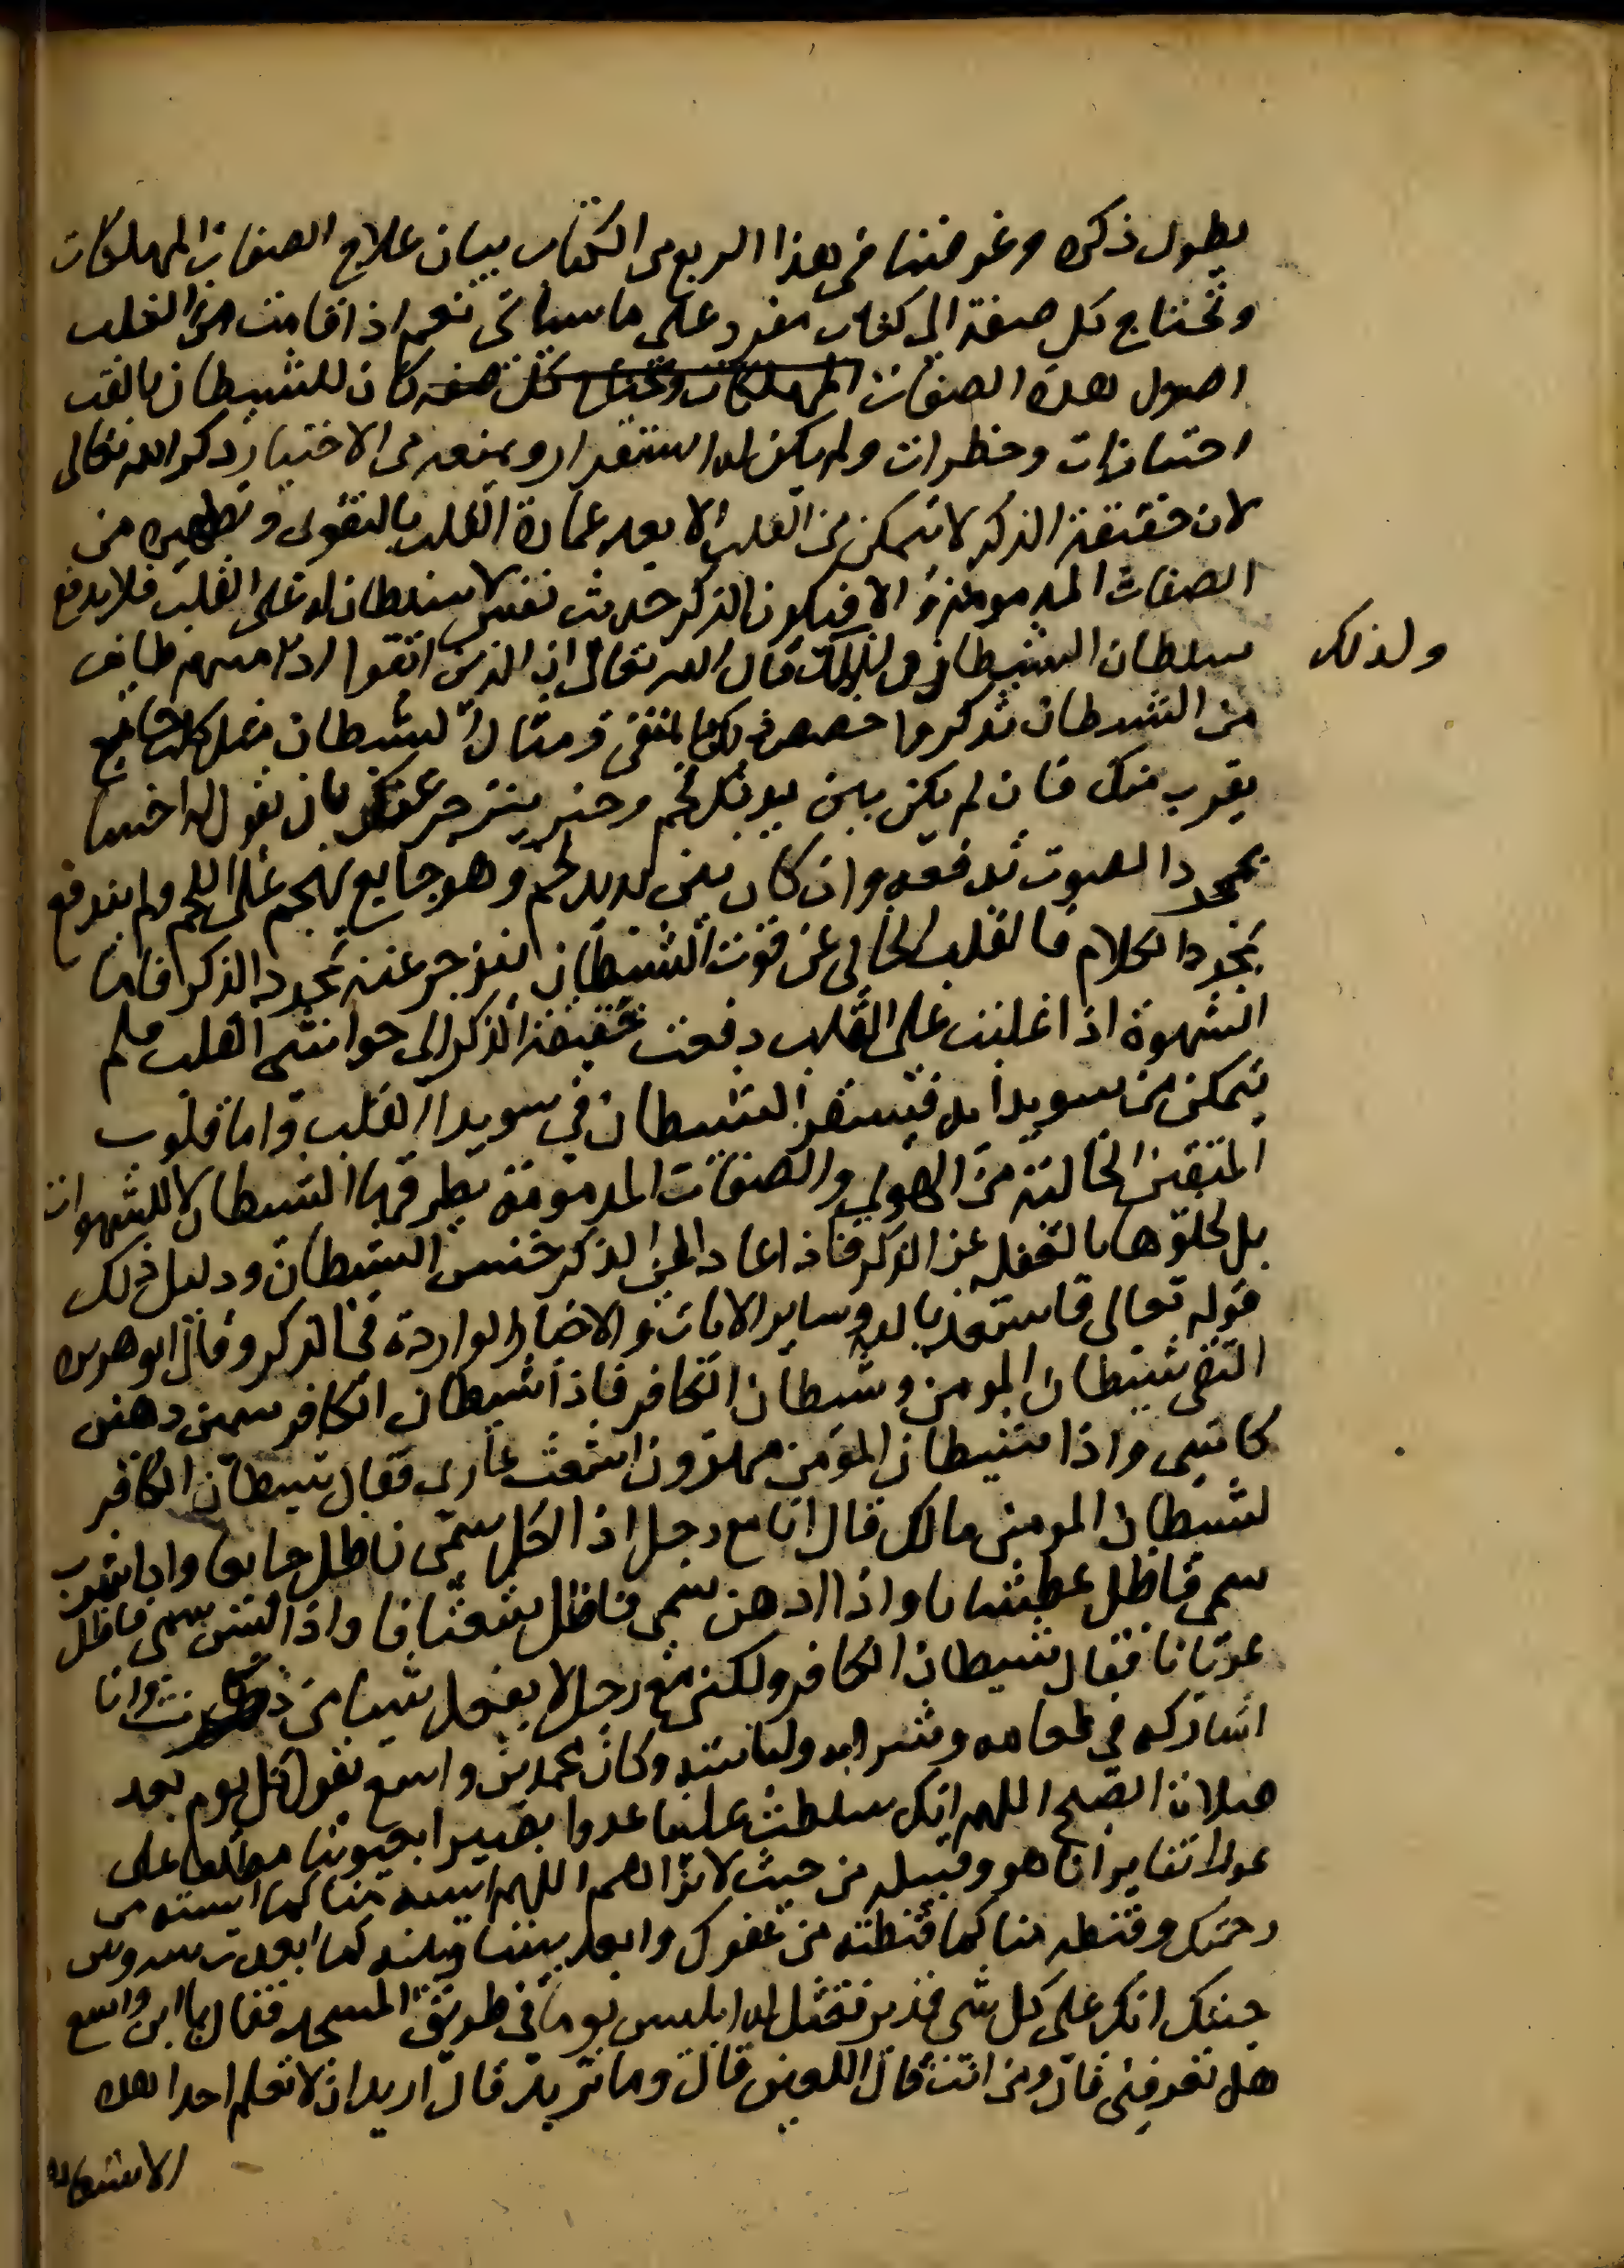 يطول ذكره وغرضنا في هذا الربع من الكتاب بيان علاج الصفات المهلكات
وتحتاج كل صفة الى كتاب مفرد على ما سياتى نعم اذا قامت من القلب
اصول هذه الصفات المهلكات وتحتاج كل صفه كان للشيطان بالقلب
اجتيازات وخطرات ولم يكن له استقرار ويمنعه من الاجتياز ذكر الله تعالى
لان حقيقة الذكر لا تتمكن من القلب الا بعد عمارة القلب بالتقوى وتطهيره من
الصفات المذمومة والا فيكون الذكر حديث نفس لا سلطان له على القلب فلا يدفع
سلطان الشيطان ولذلك قال الله تعالى ان الذين اتقوا اذا مسهم طايف
ولذلك
من الشيطان تذكروا خصص ذلك بالمتقى ومثال الشيطان مثل كلب جايع
يقرب منك فان لم يكن بين يديك لحم وخبز ينزجر عنك بان تقول له اخسا
بمجرد الصوت تدفعه وان كان بين يديك لحم وهو جايع يهجم على اللحم ولم يندفع
بمجرد الكلام فالقلب الخالى عن قوت الشيطان ينزجر عنه بمجرد الذكر فاما
الشهوة اذا غلبت على القلب دفعت حقيقة الذكر الى حواشى القلب فلم
يتمكن من سويدايه فيستقر الشيطان في سويدا القلب واما قلوب
المتقين الخالية من الهوى والصفات المذمومة يطرقها الشيطان لا للشهوات
بل لخلوها بالغفلة عن الذكر فاذا عاد الى الذكر خنس الشيطان ودليل ذلك
قوله تعالى فاستعذ بالله وساير الايات والاخبار الواردة في الذكر وقال ابو هريره
التقى شيطان المومن وشيطان الكافر فاذا شيطان الكافر سمين دهين
كاسى واذا شيطان المومن مهزول اشعث عارى فقال شيطان الكافر
لشيطان المومن مالك قال انا مع رجل اذا اكل سمى فاظل جايعا واذا شرب
سمى فاظل عطشانا واذا ادهن سمى فاظل شعثانا واذا لبس سمى فاظل
عريانا فقال شيطان الكافر ولكنى مع رجل لا يفعل شيا من ذلك وانا
اشاركه في طعامه وشرابه ولباسه وكان محمد بن واسع يقول كل يوم بعد
صلاة الصبح اللهم انك سلطت علينا عدوا بصيرا بعيوبنا مطلعا على
عوراتنا يرانا هو وقبيله من حيث لا نراهم اللهم ايسه منا كما ايسته من
رحمتك وقنطه منا كما قنطته من عفوك وابعد بيننا وبينه كما ابعدت بينه وبين
جنتك انك على كل شى قدير فتمثل له ابليس يوما في طريق المسجد فقال يا ابن واسع
هل تعرفنى قال ومن انت قال اللعين قال وما تريد قال اريد ان لا تعلم احدا هذه
الاستعاذه